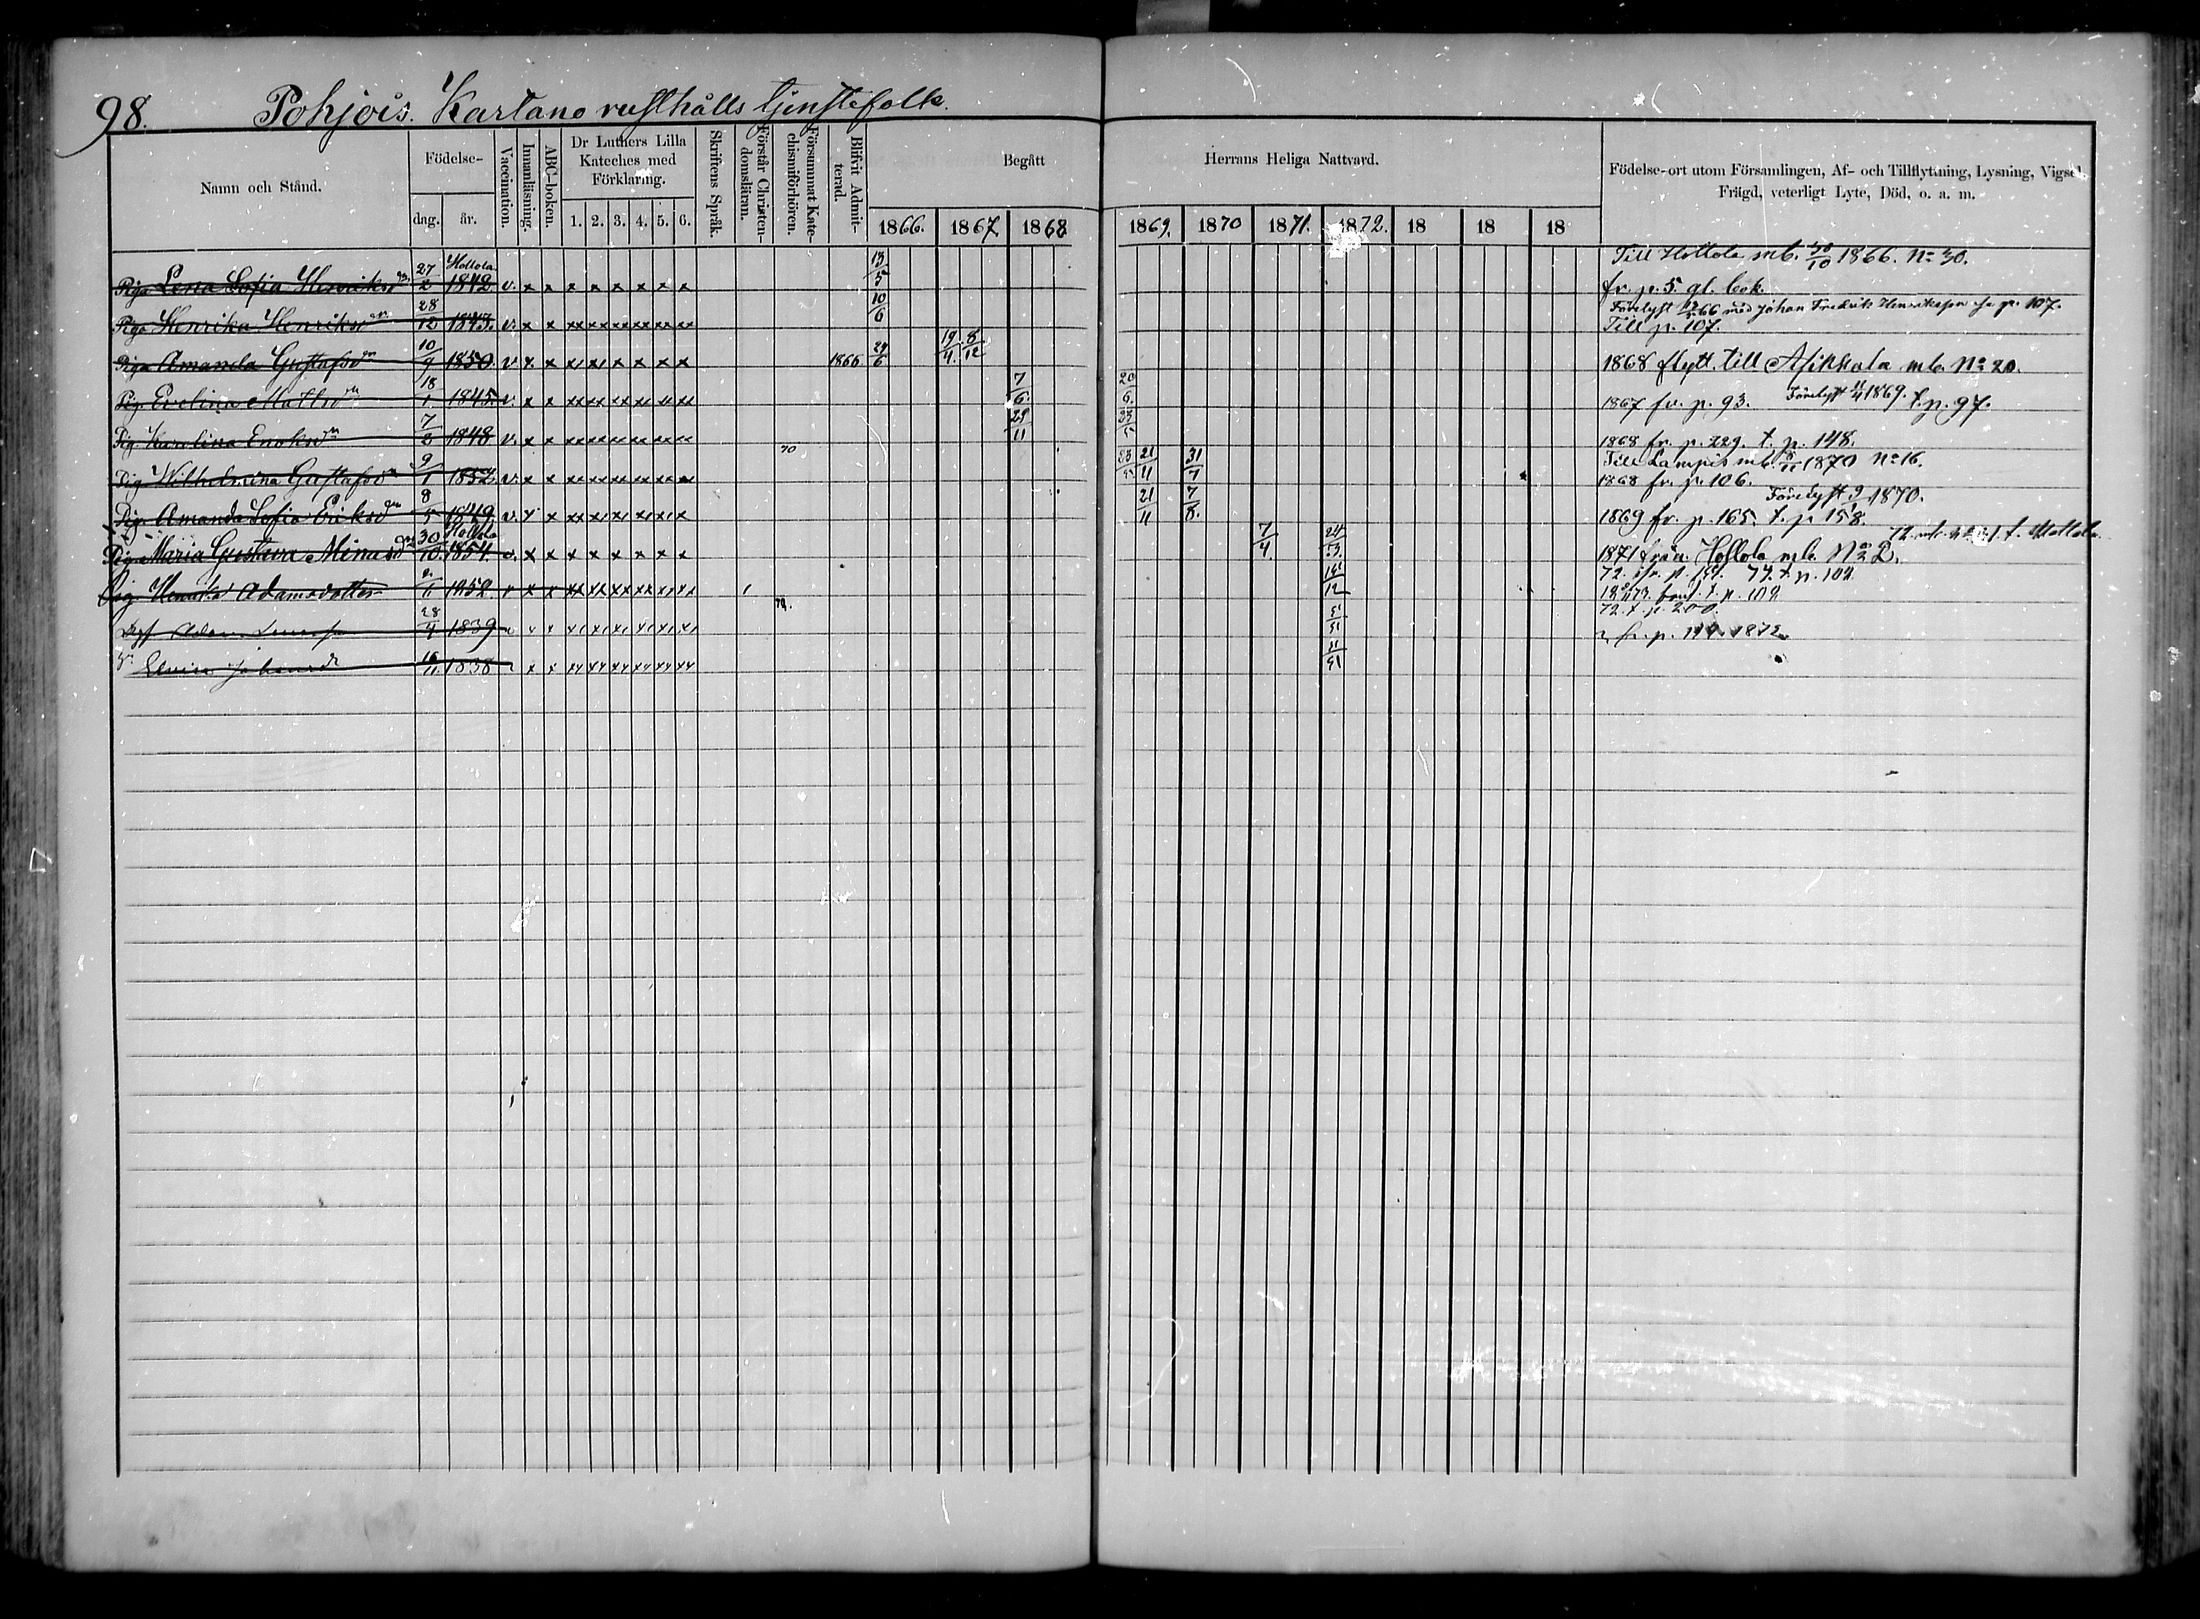 98. Pohjois. Kartano rusthålls tjenstefolk.
Namn och Stånd.
Födelse-
dag. år.
Vaccination.
Innanläsning.
ABC-boken.
Dr Luthers Lilla Kateches med Förklaring.
1. 2. 3. 4. 5. 6.
Skriftens Språk.
Förstår Christendomsläran.
Försummat Katechismiförhören.
Blifvit Admitterad.
Begått Herrans Heliga Nattvard.
1866. 1867 1868 1869. 1870 1871. 1872. 18 18 18
Födelse-ort utom Församlingen, Af- och Tillflyttning, Lysning, Vigsel, Frägd, veterligt Lyte, Död, o. a. m.
Piga Lena Sofia Henriksdr. 27/2 Hollola 1842 v. x x x x x x x x 13/5 Till Hollola mb. 30/10 1866. No 30.
fr. p. 5 gl. bok.
Piga Henrika Henriksdr 28/12 1843. v. x x xx xx xx xx xx xx 10/6 Förelyst 66 med Johan Fredrik Henriksson p. 107.
Till p. 107.
Piga Amanda Gustafsdr 10/9 1850. v. x x x x x x x x 1866 24/6 19/4. 8/12 1868 flytt. till Asikkala mb. No 20.
Pig. Evelina Mattsdr 18/1 1845. v. x x xx xx xx xx xx xx 7/6. 20/6. 1867 fr. p. 93. Förelyst 11/4 1869. t. p. 97.
Pig. Karolina Enoksdr 7/2 1848 v. x x xx xx xx xx xx xx 70 29/11 23/5 1868 fr. p. 229. t. p. 148.
Pig Wilhelmina Gustafsdr 9/1 1852 v. x x xx xx xx xx xx xx 23/5 21/11 31/7 Till Lampis mb. 1870 No 16.
1868 fr. p. 106.
Pig. Amanda Sofia Eriksdr 8/5 1849 v. x x xx xx xx xx xx xx 21/11 7/8. Förelyst 1870.
1869 fr. p. 165. t. p 158.
Pig. Maria Gustava Minasdr 30/10 Hollola 1854 v. x x x x x x x x 7/4 24/3. t. Hollola
1871 från Hollola mb. No 2.
Pig. Henrika Adamsdotter 1852 v x x xx xx xx xx xx xx 1 12 t. p. 102
Adam 28/4 1839 v x x 72. t. p. 200.
fr. p. 1872
Johansdr 1838